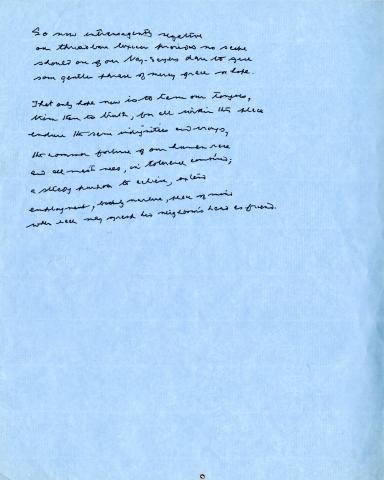 So now intransigents negative
our threadbare lexicon provides no scope
should one of our Nay-Sayers dare to give
some gentle phrase of mercy, grace or hope.
That only hope now is to turn our tongues,
them to truth, for all within this place
endure the same indignities and wrongs,
the common fortune of our human race
and all must need, in tolerance combine;
a steady freedom to achieve, extend
employment, bodily nurture, peace of mind
with each may grasp his neighbour's hand as friend.